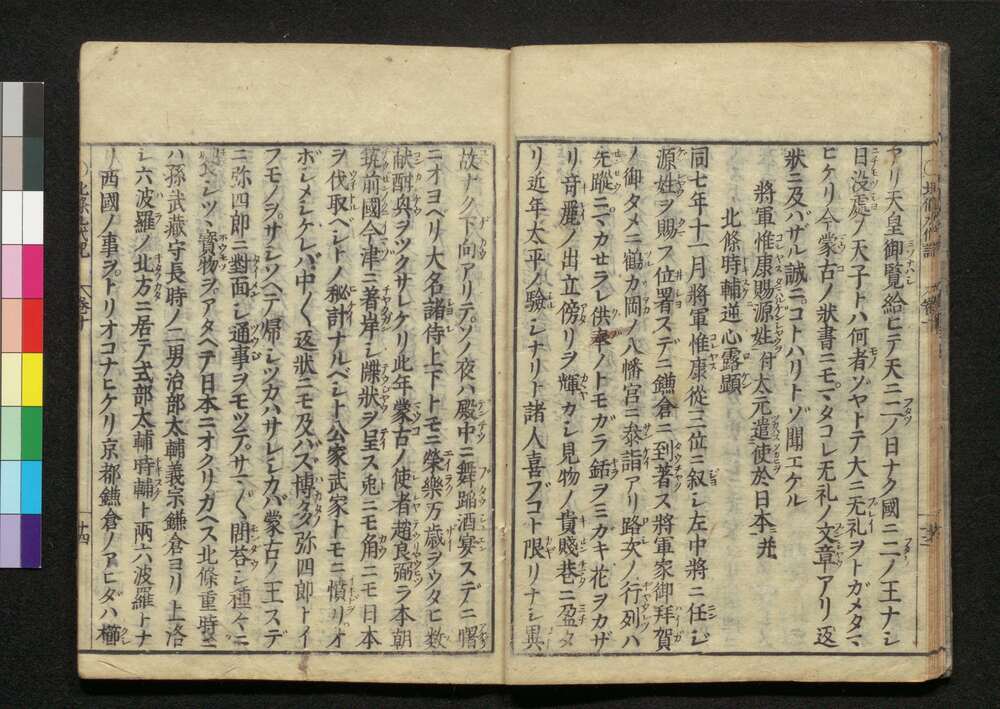 ヤリ天皇御覧給ヒテ天ニ二ノ日ナク國ニ二ノ王ナシ
日没處ノ天子トハ何者ゾヤトテ大ニ无礼ヲトガメタマ
ヒケリ今蒙古ノ狀書ニモマタコレ无礼ノ文章アリ返
狀ニ及ハザル誠ニコトハリトゾ聞エケル
將軍惟康賜源姓付大元遣使於日本并
北條時輔逆心露顯
同七年十一月將軍惟康從三位ニ叙シ左中將ニ任シ
源姓ヲ賜フ位署スデニ鎌倉ニ到著ス將軍家御拜賀
ノ御タメニ鶴カ岡ノ八幡宮ニ泰詣アリ路次ノ行列ハ
先蹤ニマカセラレ供奉ノトモガラ銛ヲミガキ花ヲカザ
リ竒麗ノ出立傍リヲ輝カシ見物ノ貴賤巷ニ盈タ
リ近年太平ノ驗シナリト諸人喜ブコト限リナシ異
故ナク下向アリテソノ夜ハ殿中ニ舞蹈酒宴スデニ曙
ニオヨベリ大名諸侍上下トモニ榮樂万歳ヲウタヒ数
献酣興ヲツクサレケリ此年蒙古ノ使者趙良弼ラ本朝
筑前國今津ニ著岸シ牒狀ヲ呈ス兎ニモ角ニモ日本
ヲ伐取ベシトノ秘計ナルベシト公家武家トモニ憤リオ
ボシメシケレバ中〱返狀ニモ及バズ博多ノ弥四郎トイ
フモノヲサシソヘテ帰シツカハサレシカバ蒙古ノ王スデ
ニ弥四郎ニ對面シ通事ヲモツテサマ〲問荅シ種々ニ
シツヽ寳物ヲアタヘテ日本ニオクリカヘス北條重時ニ
ハ孫武藏守長時ノ二男治部太輔義宗鎌倉ヨリ上洛
シ六波羅ノ北方ニ居テ式部太輔時輔ト兩六波羅トナ
リ西國ノ事ヲトリオコナヒケリ京都鎌倉ノアヒダハ櫛
北條九代記
卷十
十四